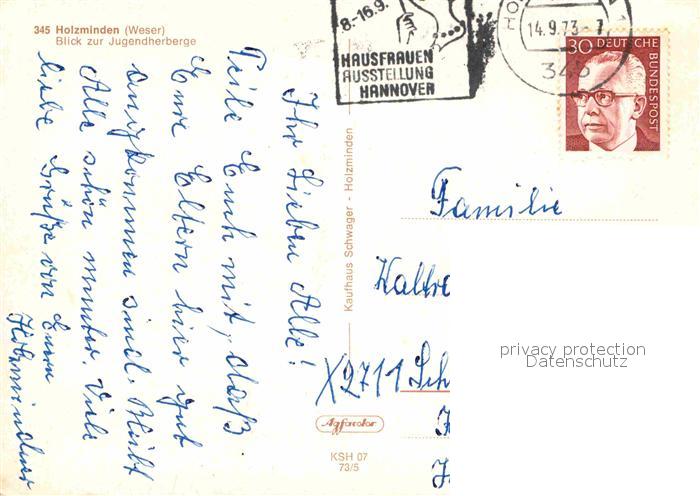 345 Holzminden (Weser)
Blick zur Jugendherberge
8.-16.9.
HAUSFRAUEN
AUSSTELLUNG
HANNOVER
14.9.73-7
345
30 DEUTSCHE
BUNDESPOST
Ihr Lieben Alle!
Teile Euch mit, daß
Eure Eltern hier gut
angekommen sind. Bleibt
Alle schön munter. Viele
liebe Grüße von Euren
Holzmindener
Kaufhaus Schwager - Holzminden
Familie
X2711 Sch
Agfacolor
KSH 07
73/5
privacy protection
Datenschutz